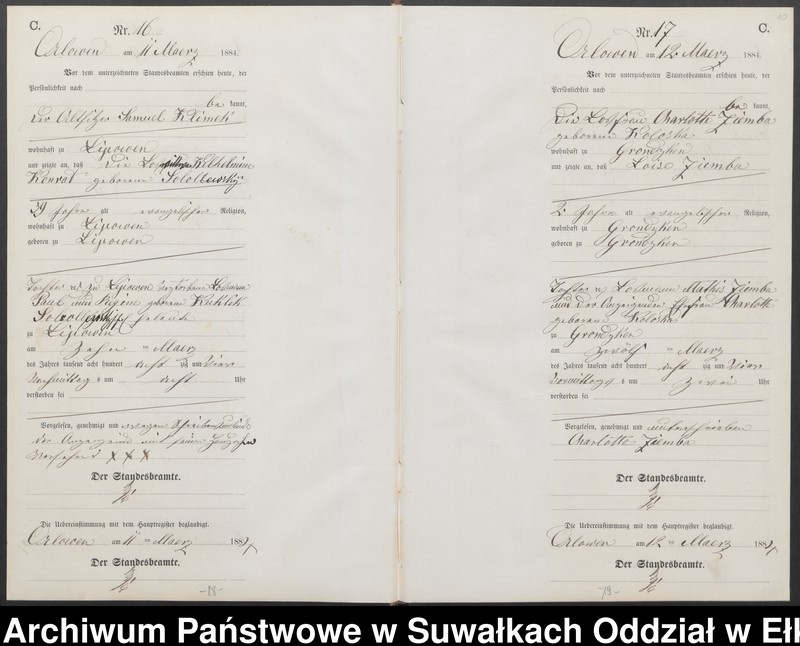 C.
Nr. 16
Orlowen am 11 Maerz 1884.
Vor dem unterzeichneten Standesbeamten erschien heute, der
Persönlichkeit nach
be kannt,
der Altsitzer Samuel Klimek
wohnhaft zu Lipowen
und zeigte an, daß die Wilhelmine
Konrat geborene
59 Jahre alt evangelischer Religion,
wohnhaft zu Lipowen
geboren zu Lipowen
Tochter zu Lipowen verstorbene
Paul und Regine geborene Kuklik
Eheleute
zu Lipowen
am Zehn ten Maerz
des Jahres tausend acht hundert acht zig und vier
Nachmittag s um acht Uhr
verstorben sei
Vorgelesen, genehmigt und wegen
der Anzeigende mit seinem Handzeichen
versehen XXX
Der Standesbeamte.
Die Uebereinstimmung mit dem Hauptregister beglaubigt.
Orlowen am 11 ten Maerz 1884
Der Standesbeamte.
-18-
Nr. 17
C.
Orlowen am 12 Maerz 1884.
Vor dem unterzeichneten Standesbeamten erschien heute, der
Persönlichkeit nach
be kannt,
die Losfrau Charlotte Ziemba
geborene Koloska
wohnhaft zu Grondzken
und zeigte an, daß Loise Ziemba
2 Jahre alt evangelischer Religion,
wohnhaft zu Grondzken
geboren zu Grondzken
Tochter des Losmann Mathis Ziemba
und der Anzeigenden Ehefrau Charlotte
geborene Koloska
zu Grondzken
am zwölf ten Maerz
des Jahres tausend acht hundert acht zig und vier
Vormittag s um zwei Uhr
verstorben sei
Vorgelesen, genehmigt und unterschrieben
Charlotte Ziemba
Der Standesbeamte.
Die Uebereinstimmung mit dem Hauptregister beglaubigt.
Orlowen am 12 ten Maerz 1884
Der Standesbeamte.
-19-
Archiwum Państwowe w Suwałkach Oddział w Ełk